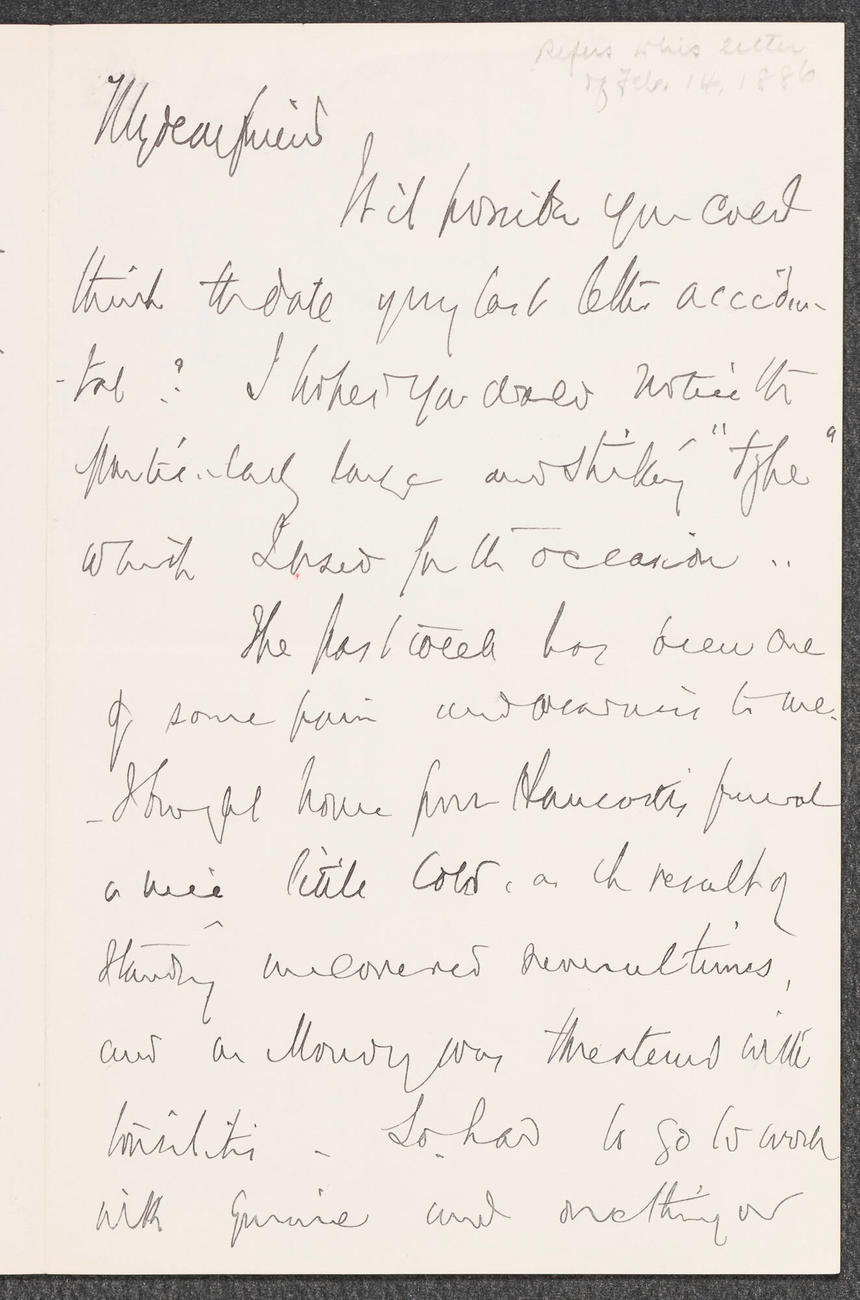 Refers to his letter
of Feb. 14, 1886
My dear friend
Is it possible you could
think the date of my last letter acciden-
-tal? I hoped you would notice the
particularly large and striking "type"
which I used for the occasion ..
The past week has been one
of some pain and weariness to me.
- I brought home from Hancock's funeral
a nice little cold, as the result of
standing uncovered several times,
and on Monday was threatened with
tonsilitis - So had to go to work
with quinine and one thing or